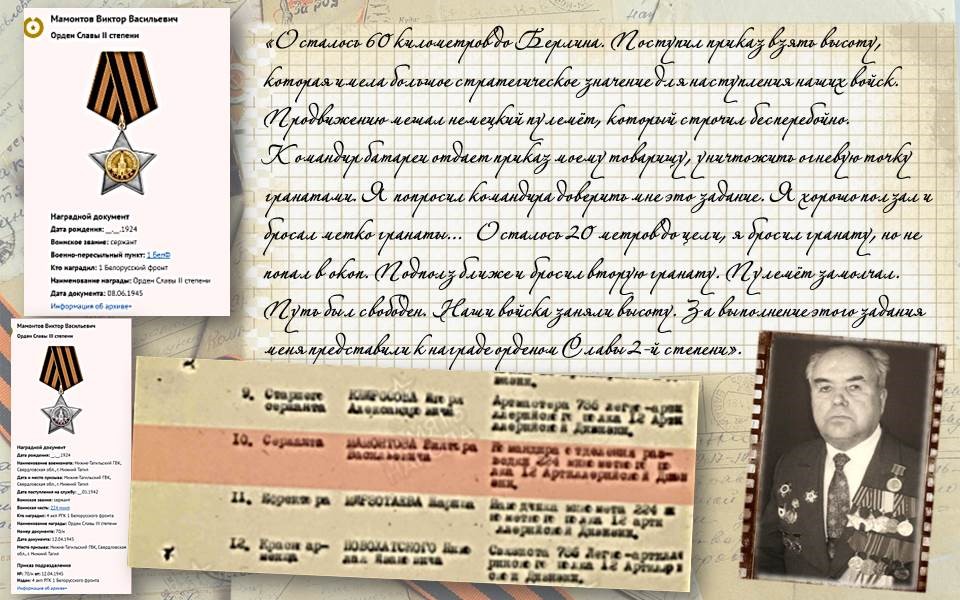 Мамонтов Виктор Васильевич
Орден Славы II степени
Наградной документ
Дата рождения: __.__.1924
Воинское звание: сержант
Военно-пересыльный пункт: 1 БелФ
Кто наградил: 1 Белорусский фронт
Наименование награды: Орден Славы II степени
Дата документа: 08.06.1945
Информация об архиве+
«Осталось 60 километров до Берлина. Поступил приказ взять высоту,
которая имела большое стратегическое значение для наступления наших войск.
Продвижению мешал немецкий пулемёт, который строчил бесперебойно.
Командир батареи отдает приказ моему товарищу, уничтожить огневую точку
гранатами. Я попросил командира доверить мне это задание. Я хорошо ползал и
бросал метко гранаты... Осталось 20 метров до цели, я бросил гранату, но не
попал в окоп. Подполз ближе и бросил вторую гранату. Пулемёт замолчал.
Путь был свободен. Наши войска заняли высоту. За выполнение этого задания
меня представили к награде орденом Славы 2-й степени».
Мамонтов Виктор Васильевич
Орден Славы III степени
Наградной документ
Дата рождения: __.__.1924
Наименование военкомата: Нижне-Тагильский ГВК,
Свердловская обл., г. Нижний Тагил
Дата и место призыва: Нижне-Тагильский ГВК,
Свердловская обл., г. Нижний Тагил
Дата поступления на службу: __.__.1942
Воинское звание: сержант
Воинская часть: 224 минп
Кто наградил: 4 акп РГК 1 Белорусского фронта
Наименование награды: Орден Славы III степени
Номер документа: 70/н
Дата документа: 12.04.1945
Место призыва: Нижне-Тагильский ГВК, Свердловская
обл., г. Нижний Тагил
Приказ подразделения
№: 70/н от: 12.04.1945
Издан: 4 акп РГК 1 Белорусского фронта
Информация об архиве+
9. Старшего
сержанта
Александровича
Артмастера 786 легко-арти
ллерийского полка 12 Арт
ллерийской Дивизии.
10. Сержанта
МАМОНТОВА Виктора
Васильевича
Командира отделения раз-
ведки 224 минометного по
лка 12 Артиллерийской Диви
зии.
11. Ефрейтора
Наводчика миномета 224 м
инометного полка 12 арти
ллерийской Дивизии.
12. Красноар-
мейца
Связиста 786 Легко-артилле
рийского полка 12 Артиллер
ской Дивизии.